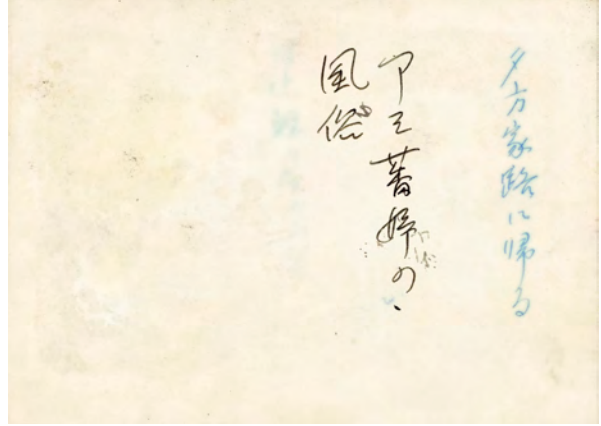 夕方家路に帰る
アミ蕃婦の、
風俗